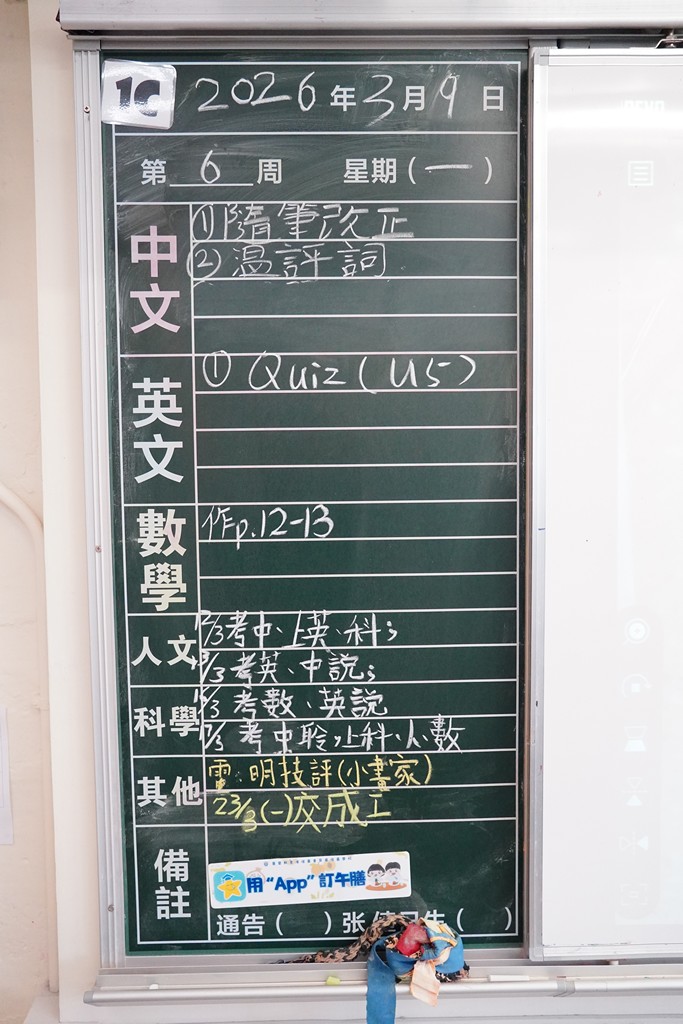 1C 2026年3月9日
第 6 周 星期(一)
中文
① 隨筆改正
② 温評詞
英文
① Quiz (U5)
數學
作p.12-13
人文
12/3考中、上英、科;
13/3考英、中説;
科學
16/3 考數、英説
17/3 考中聆,上科、人、數
其他
電:明技評(小畫家)
23/3(一)交成工
備註
用“App”訂午膳
通告( )张
( )